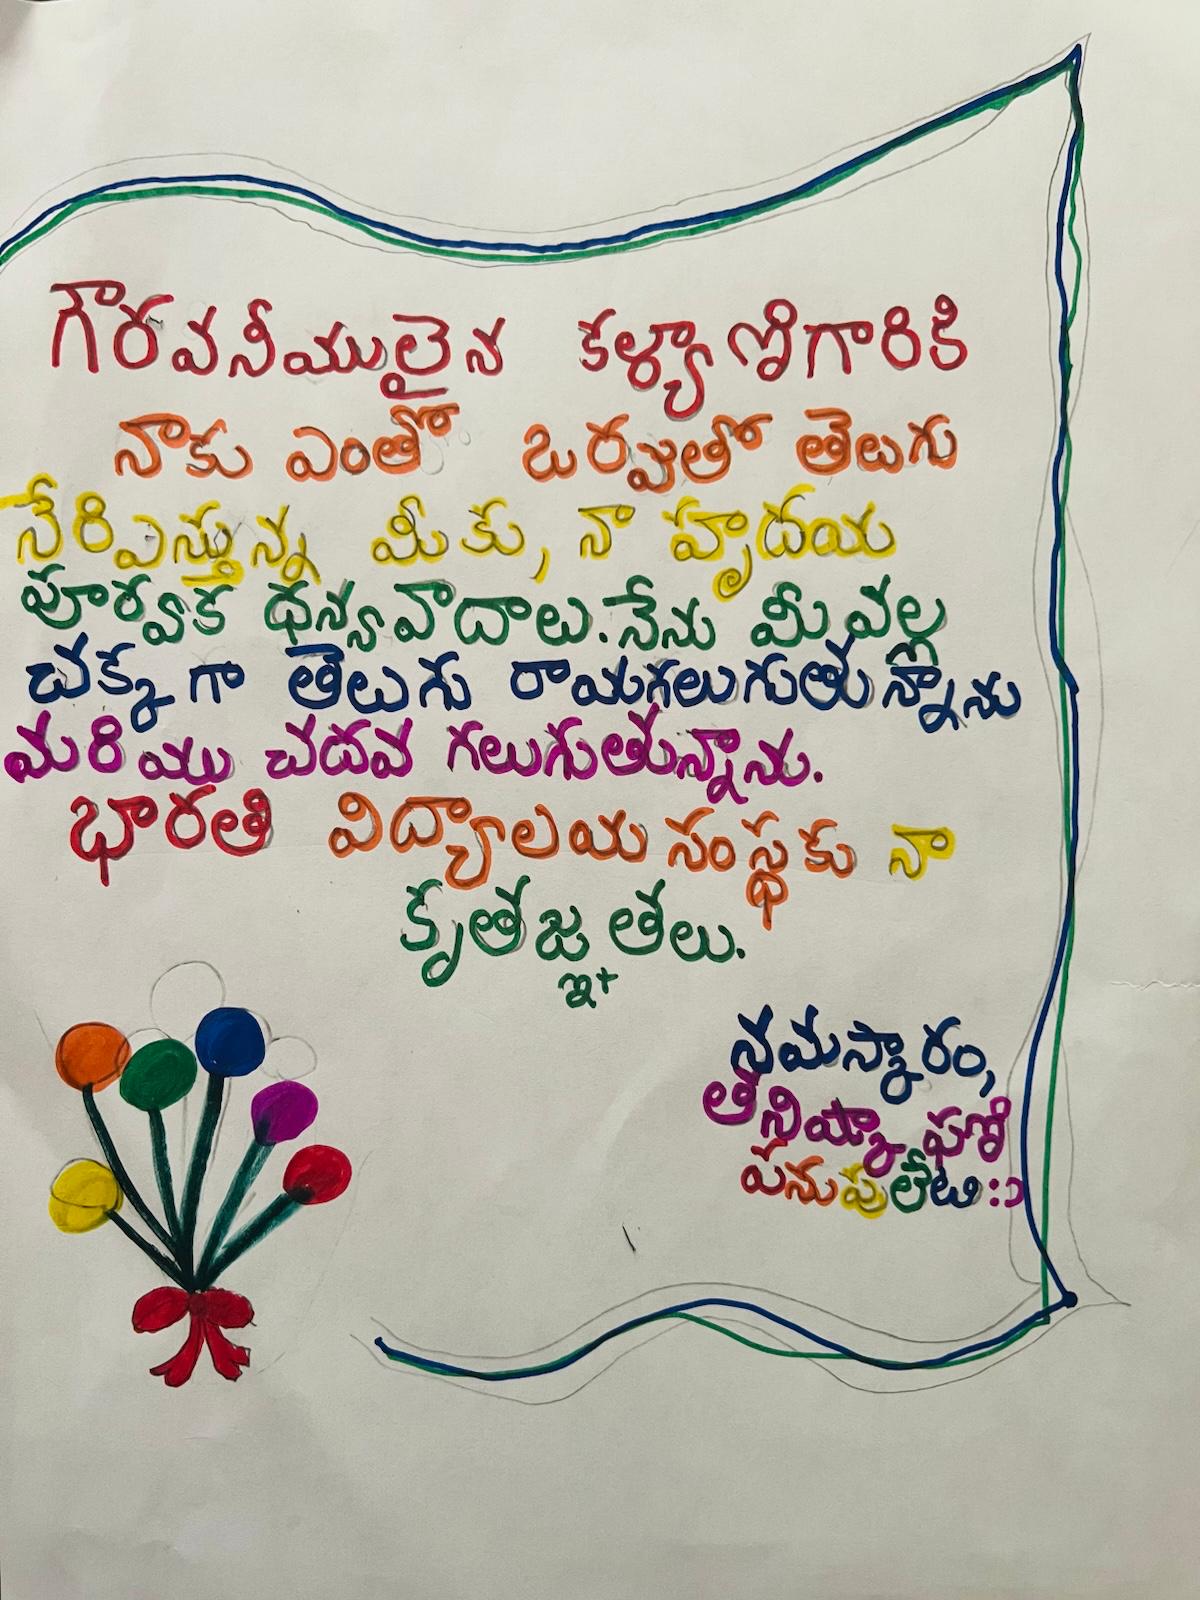 గౌరవనీయులైన కళ్యాణిగారికి
నాకు ఎంతో ఒర్పుతో తెలుగు
నేరిపిస్తున్న మీకు, నా హృదయ
పూర్వక ధన్యవాదాలు. నేను మీ వల్ల
చక్కగా తెలుగు రాయగలుగుతున్నాను
మరియు చదవ గలుగుతున్నాను.
భారతి విద్యాలయ సంస్థకు నా
కృతజ్ఞతలు.
నమస్కారం,
తనిష్కా ఫణి
పనుపులేటి :)